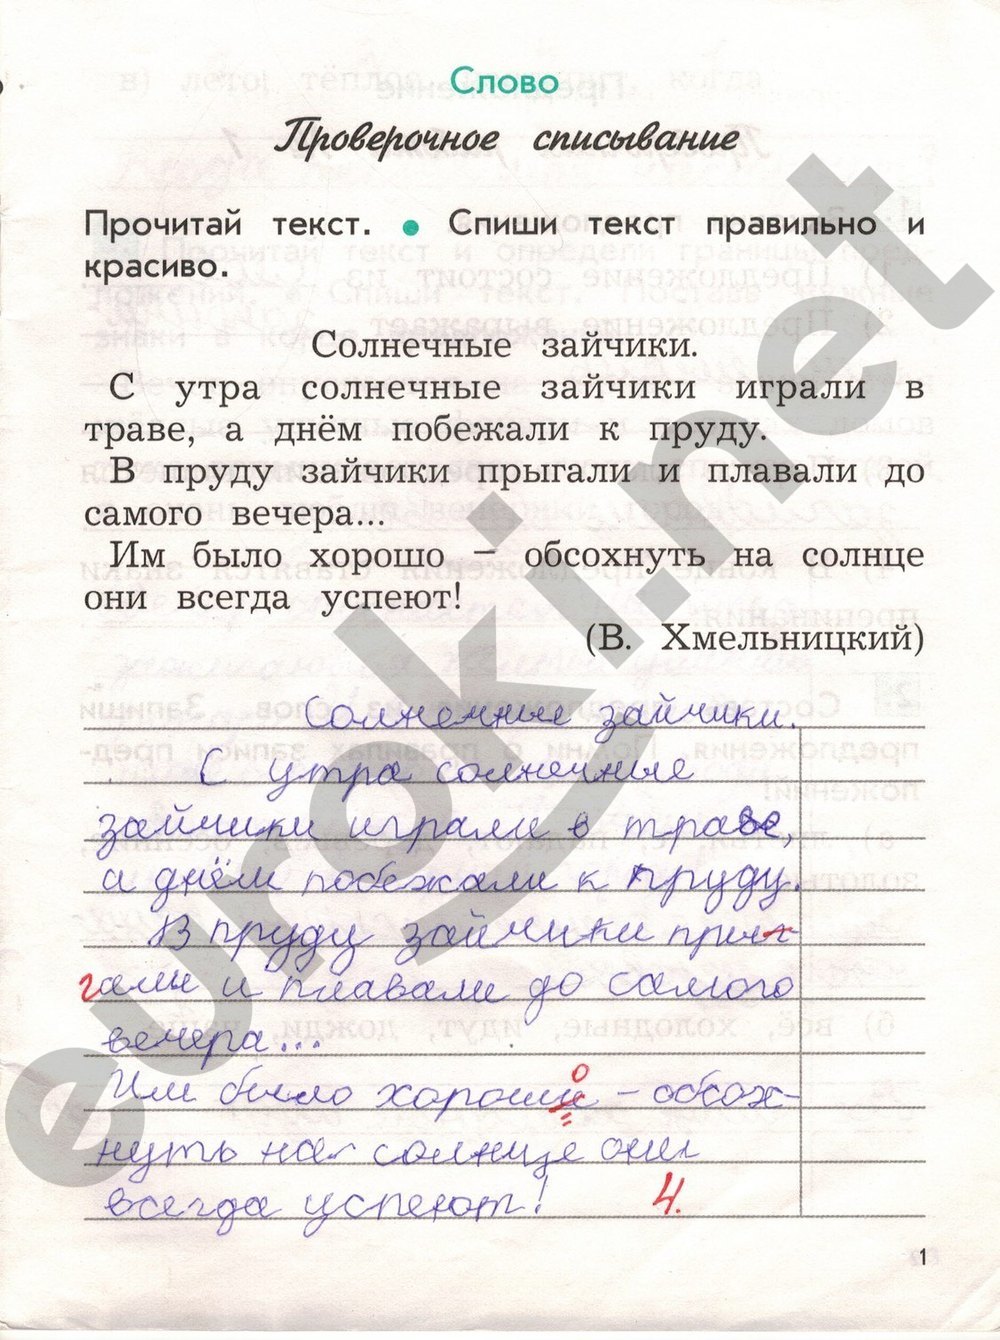 Слово
Проверочное списывание
Прочитай текст. • Спиши текст правильно и
красиво.
Солнечные зайчики.
С утра солнечные зайчики играли в
траве, а днём побежали к пруду.
В пруду зайчики прыгали и плавали до
самого вечера...
Им было хорошо – обсохнуть на солнце
они всегда успеют!
(В. Хмельницкий)
Солнечные зайчики.
С утра солнечные
зайчики играли в траве,
а днём побежали к пруду.
В пруду зайчики пры-
гали и плавали до самого
вечера...
Им было хорошо – обсох-
нуть на солнце они
всегда успеют!
4.
1
euroki.net